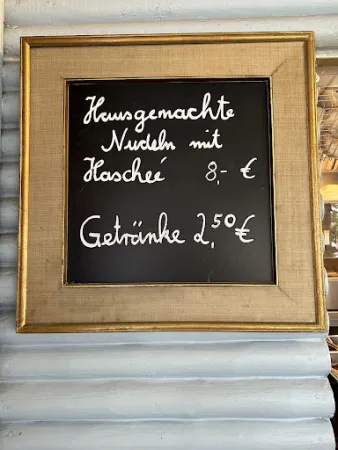 Hausgemachte
Nudeln mit
Hascheé 8,- €
Getränke 2,50 €